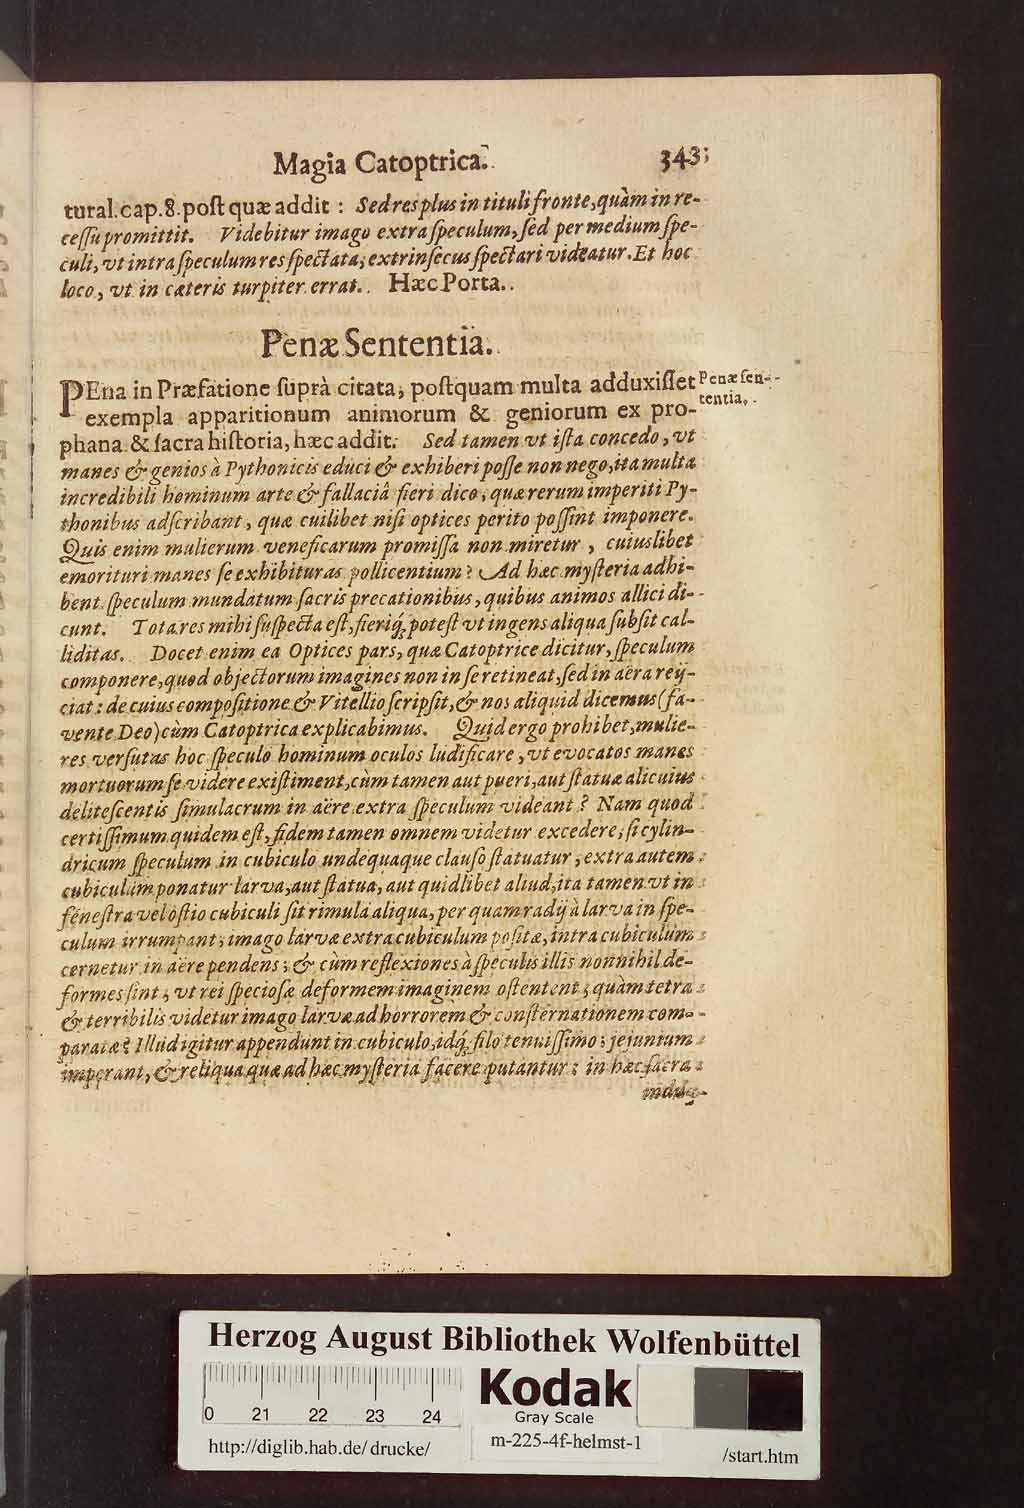 Magia Catoptrica. 343
tural. cap. 8. poſt quæ addit : Sed res plus in tituli fronte, quàm in re-
ceſſu promittit. Videbitur imago extra ſpeculum, ſed per medium ſpe-
culi, vt intra ſpeculum res ſpectata, extrinſecus ſpectari videatur. Et hoc
loco, vt in cæteris turpiter errat. Hæc Porta.
Penæ Sententia.
PEna in Præfatione ſuprà citata, poſtquam multa adduxiſſet
Penæ ſen-
tentia.
exempla apparitionum animorum & geniorum ex pro-
phana & ſacra hiſtoria, hæc addit: Sed tamen vt iſta concedo, vt
manes & genios à Pythonicis educi & exhiberi poſſe non nego, ita multa
incredibili hominum arte & fallaciâ fieri dico, quæ rerum imperiti Py-
thonibus adſcribant, quæ cuilibet niſi optices perito poſſint imponere.
Quis enim mulierum veneficarum promiſſa non miretur, cuiuslibet
emorituri manes ſe exhibituras pollicentium? Ad hæc myſteria adhi-
bent ſpeculum mundatum ſacris precationibus, quibus animos allici di-
cunt. Tota res mihi ſuſpecta eſt, fieriq; poteſt vt ingens aliqua ſubſit cal-
liditas. Docet enim ea Optices pars, quæ Catoptrice dicitur, ſpeculum
componere, quod objectorum imagines non in ſe retineat, ſed in aëra reij-
ciat: de cuius compoſitione & Vitellio ſcripſit, & nos aliquid dicemus (fa-
vente Deo) cùm Catoptrica explicabimus. Quid ergo prohibet, mulie-
res verſutas hoc ſpeculo hominum oculos ludificare, vt evocatos manes
mortuorum ſe videre exiſtiment, cùm tamen aut pueri, aut ſtatuæ alicuius
deliteſcentis ſimulacrum in aëre extra ſpeculum videant? Nam quod
certiſſimum quidem eſt, fidem tamen omnem videtur excedere, ſi cylin-
dricum ſpeculum in cubiculo undequaque clauſo ſtatuatur, extra autem
cubiculum ponatur larva, aut ſtatua, aut quidlibet aliud, ita tamen vt in
feneſtra vel oſtio cubiculi ſit rimula aliqua, per quam radij à larva in ſpe-
culum irrumpant; imago larvæ extra cubiculum poſitæ, intra cubiculum
cernetur in aëre pendens; & cùm reflexiones à ſpeculis illis nonnihil de-
formes ſint, vt rei ſpecioſæ deformem imaginem oſtentent; quàm tetra
& terribilis videtur imago larvæ ad horrorem & conſternationem com-
paratæ? Illud igitur appendunt in cubiculo, idq; filo tenuiſſimo: jejunium
imperant, & reliqua quæ ad hæc myſteria facere putantur: in hæc ſacra
indu-
Herzog August Bibliothek Wolfenbüttel
0 21 22 23 24
Kodak
Gray Scale
http://diglib.hab.de/drucke/
m-225-4f-helmst-1
/start.htm